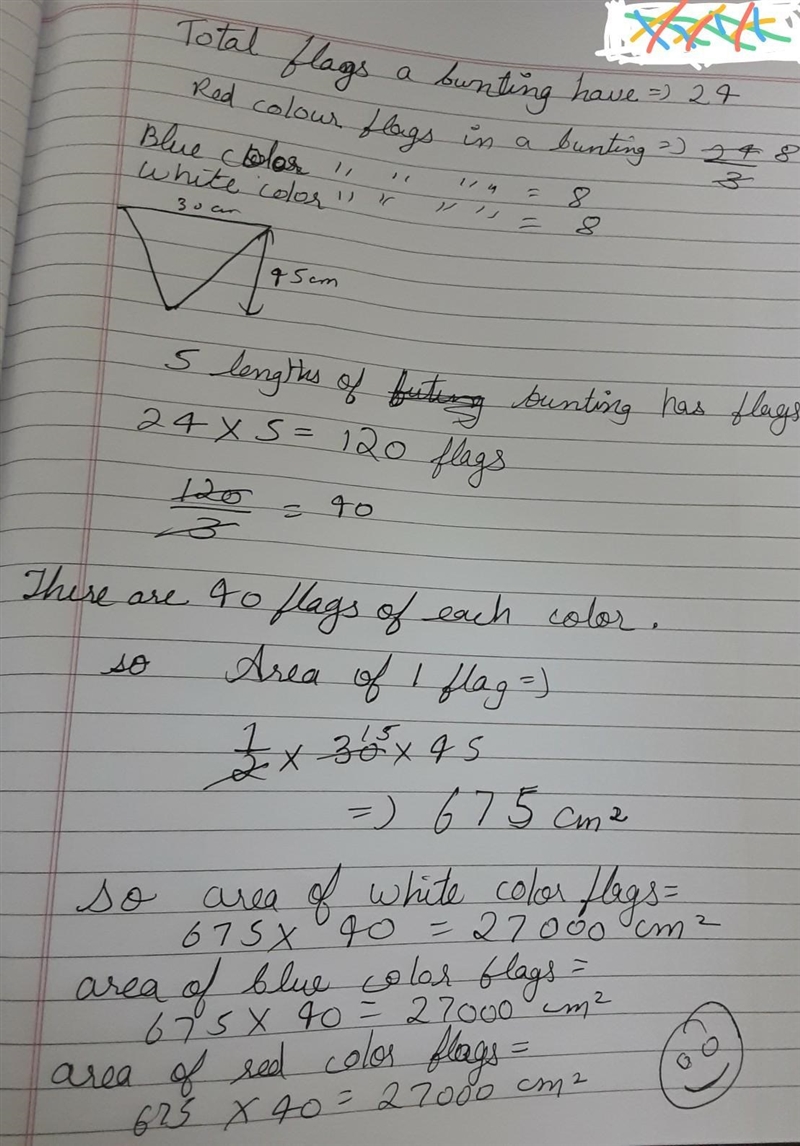 Total flags a bunting have => 24
Red colour flags in a bunting => 24/3 8
Blue color " " " " = 8
White color " " " " = 8
30 cm
45cm
5 lengths of bunting has flags
24 X 5 = 120 flags
120/3 = 40
There are 40 flags of each color.
so Area of 1 flag =>
1/2 x 30 15 x 45
=> 675 cm²
so area of white color flags=
675 x 40 = 27000 cm²
area of blue color flags=
675 x 40 = 27000 cm²
area of red color flags=
675 x 40 = 27000 cm²